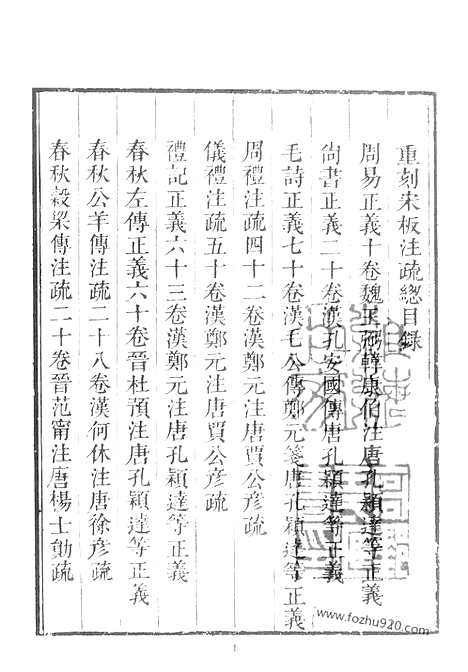 重刻宋板注疏總目錄
周易正義十卷魏王弼韓康伯注唐孔穎達等正義
尙書正義二十卷漢孔安國傳唐孔穎達等正義
毛詩正義七十卷漢毛公傳鄭元箋唐孔穎達等正義
周禮注疏四十二卷漢鄭元注唐賈公彥疏
儀禮注疏五十卷漢鄭元注唐賈公彥疏
禮記正義六十三卷漢鄭元注唐孔穎達等正義
春秋左傳正義六十卷晉杜預注唐孔穎達等正義
春秋公羊傳注疏二十八卷漢何休注唐徐彥疏
春秋穀梁傳注疏二十卷晉范甯注唐楊士勛疏
www.fozhu920.com
1